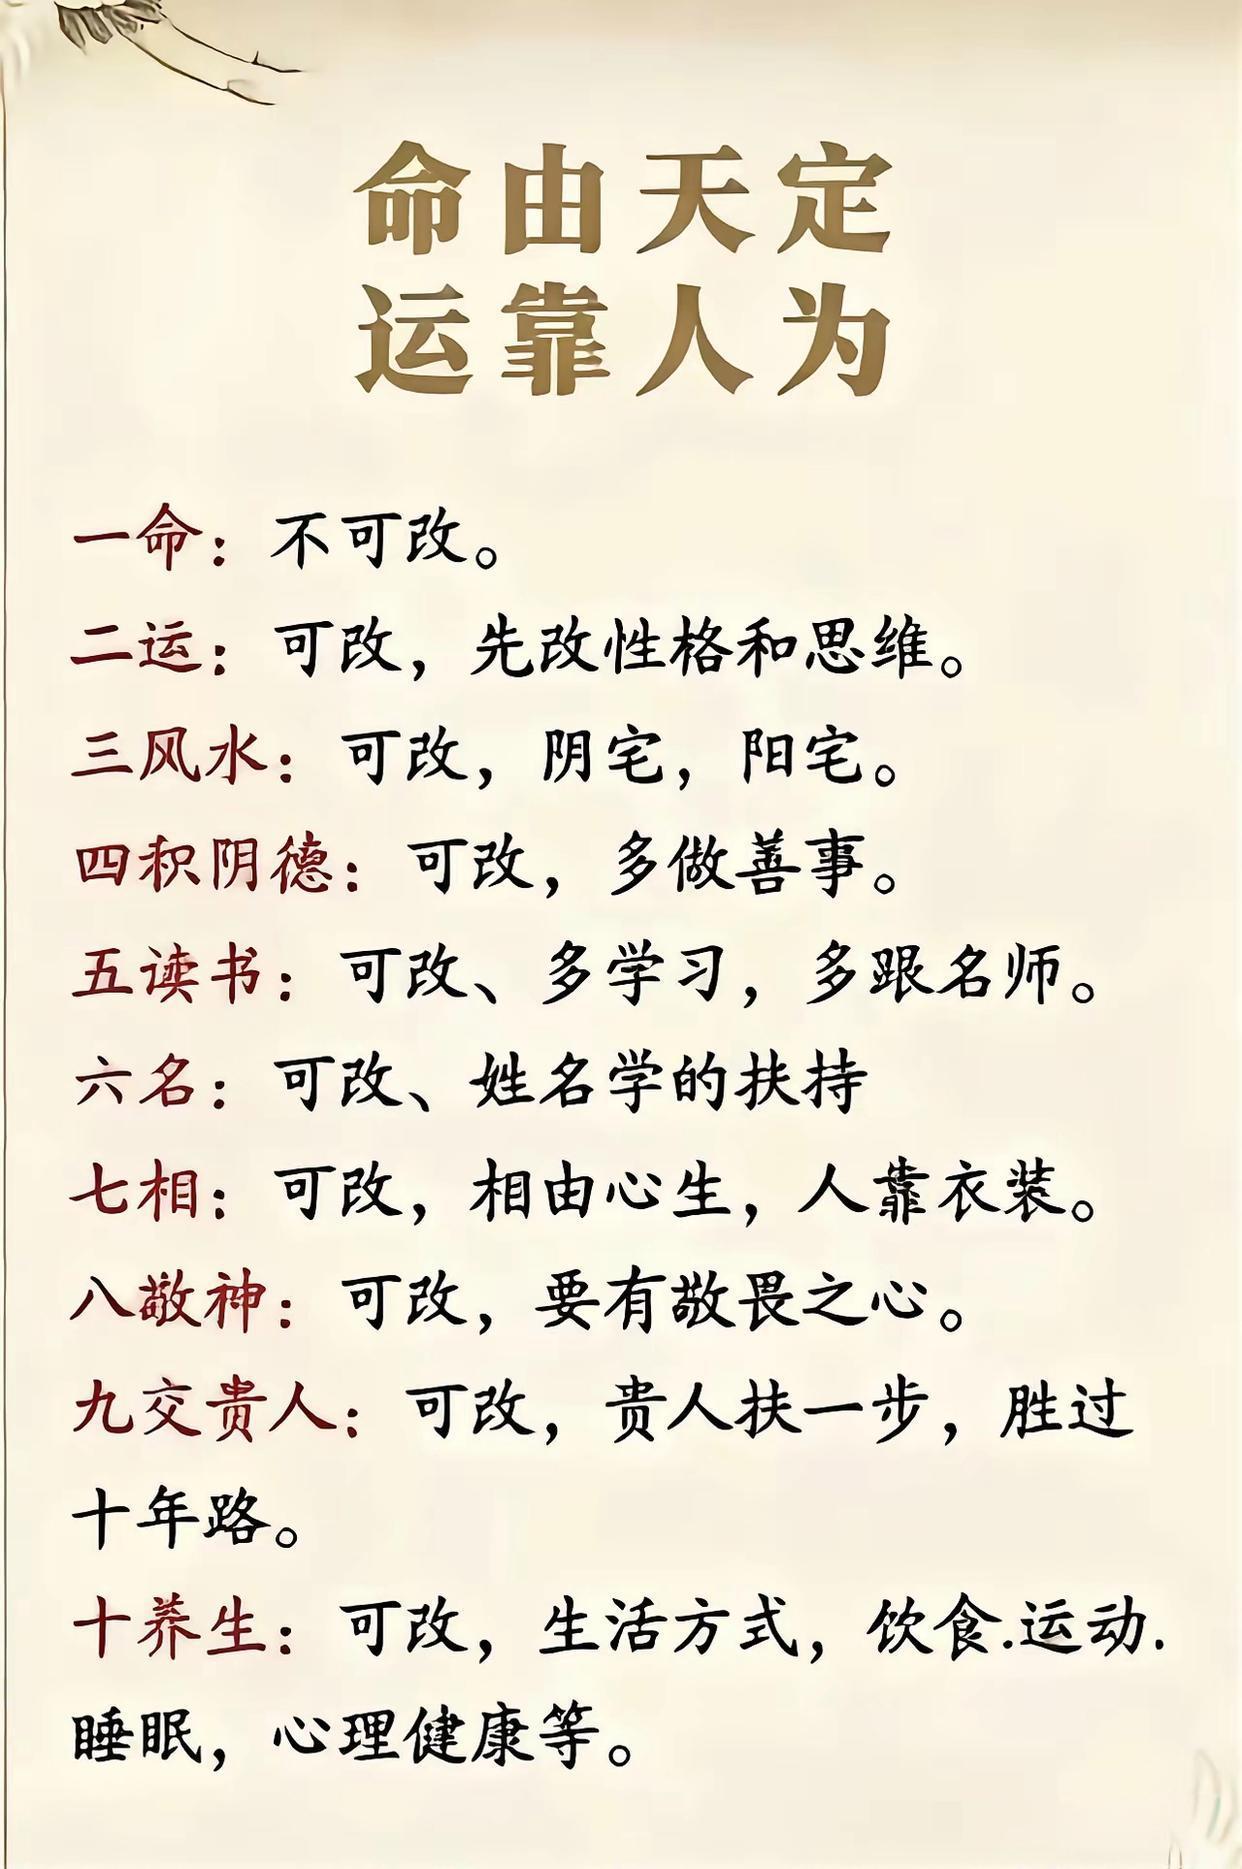 命由天定
运靠人为
一命：不可改。
二运：可改，先改性格和思维。
三风水：可改，阴宅，阳宅。
四积阴德：可改，多做善事。
五读书：可改、多学习，多跟名师。
六名：可改、姓名学的扶持
七相：可改，相由心生，人靠衣装。
八敬神：可改，要有敬畏之心。
九交贵人：可改，贵人扶一步，胜过
十年路。
十养生：可改，生活方式，饮食.运动.
睡眠，心理健康等。